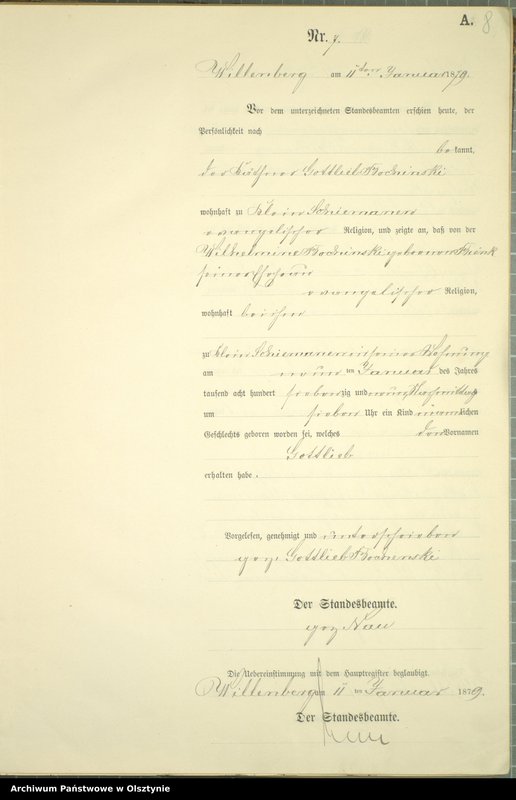 A. 8
Nr. 7.
Willenberg am 11ten Januar 1879.
Vor dem unterzeichneten Standesbeamten erschien heute, der
Persönlichkeit nach
bekannt,
der Käthner Gottlieb Bochinski
wohnhaft zu Klein Schiemanen
evangelischer Religion, und zeigte an, daß von der
Wilhelmine Bochinski geborenen
seiner Ehefrau
evangelischer Religion,
wohnhaft bei ihm
zu Klein Schiemanen in seiner Wohnung
am neunten Januar des Jahres
tausend acht hundert siebenzig und neun, Nachmittags
um sieben Uhr ein Kind männlichen
Geschlechts geboren worden sei, welches den Vornamen
Gottlieb
erhalten habe.
Vorgelesen, genehmigt und unterschrieben
gez. Gottlieb Bochenski
Der Standesbeamte.
gez
Die Uebereinstimmung mit dem Hauptregister beglaubigt.
Willenberg am 11ten Januar 1879.
Der Standesbeamte.
Archiwum Państwowe w Olsztynie